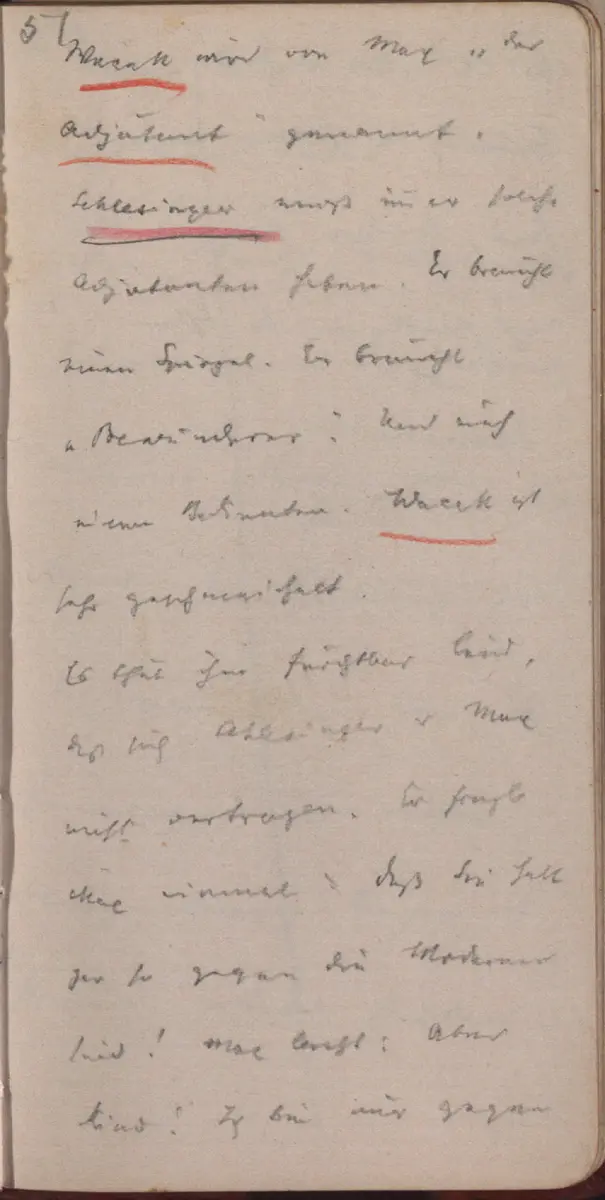 51
Wacek wird von Max „der
Adjutant" genannt.
Schlesinger muß immer solche
Adjutanten haben. Er braucht
einen Spiegel. Er braucht
„Bewunderer". Und auch
einen Bedienten. Wacek ist
sehr geschmeichelt.
Es thut ihm furchtbar leid,
daß sich Schlesinger u Max
nicht vertragen. Er fragte
Max einmal: daß Sie halt
gar so gegen die Moderne
sind! Max lacht: Aber
Kind! Ich bin nur gegen